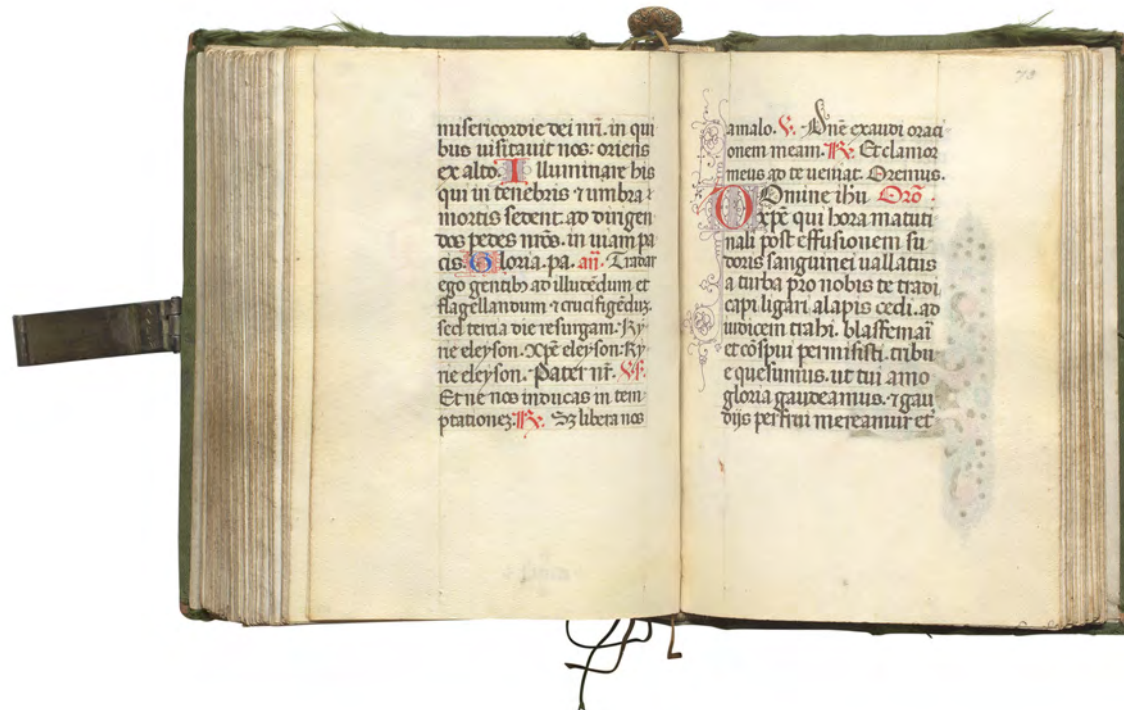 misericordie dei nr̄i. in qui
bus uisitauit nos: oriens
ex alto. Illuminare his
qui in tenebris ⁊ umbra
mortis sedent. ad dirigen
dos pedes nr̄os. in uiam pa
cis. Gloria. pa. an̄. Tradar
ego gentib᷒ ad illudēdum et
flagellandum ⁊ crucifigēduꝫ.
sed tercia die resurgam. Ky
rie eleyson. Xp̄e eleyson: Ky
rie eleyson. Pater nr̄.
Et ne nos inducas in tem
ptationeꝫ. ℟. Sꝫ libera nos
73
amalo. ℣. Dn̄e exaudi oraci
onem meam. ℟. Et clamor
meus ad te ueniat. Oremus.
Domine ihu Orō.
xp̄e qui hora matuti
nali post effusionem su
doris sanguinei uallatus
a turba pro nobis te tradi
capi. ligari alapis cedi. ad
iudicem trahi. blasfemari
et cōspui permisisti. tribu
e quesumus. ut tui amo
gloria gaudeamus. ⁊ gau
dijs perfrui mereamur et